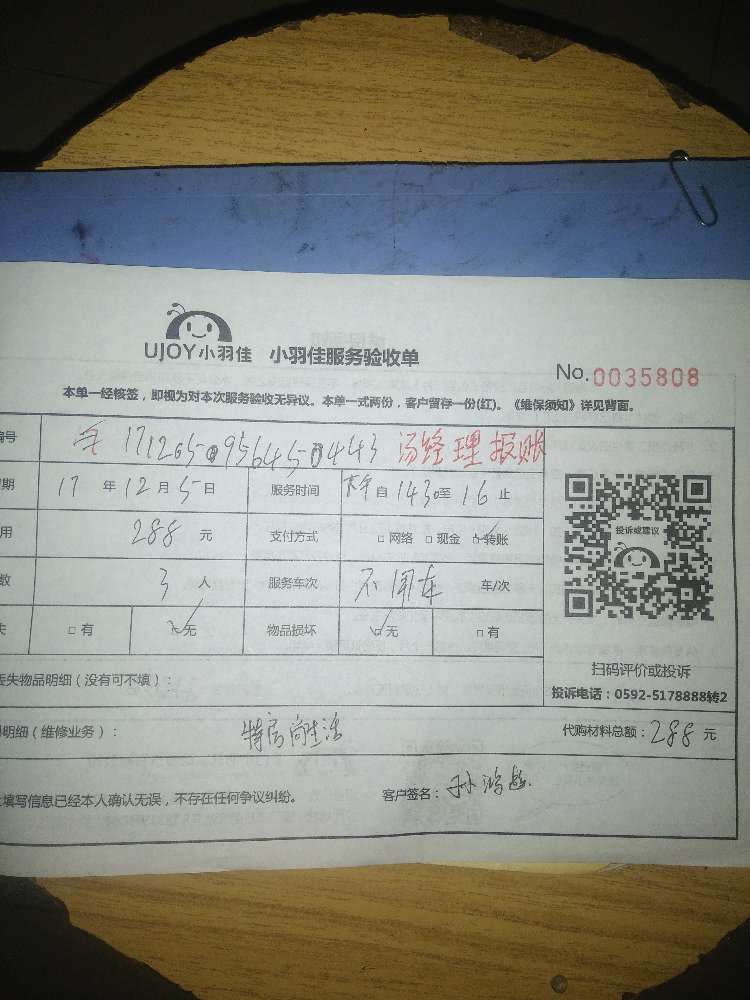 UJOY小羽佳 小羽佳服务验收单
No. 0035808
本单一经核签，即视为对本次服务验收无异议。本单一式两份，客户留存一份(红)。《维保须知》详见背面。
编号 17120509564504443 汤经理报账
期 17 年 12 月 5 日 服务时间 自 1430 至 16 止
用 288 元 支付方式 □ 网络 □ 现金 ☑ 转账
数 3 人 服务车次 不用车 车/次
失 □ 有 ☑ 无 物品损坏 ☑ 无 □ 有
投诉或建议
扫码评价或投诉
投诉电话：0592-5178888转2
丢失物品明细（没有可不填）：
明细（维修业务）： 特房尚生活 代购材料总额：288 元
填写信息已经本人确认无误，不存在任何争议纠纷。 客户签名：孙鸿